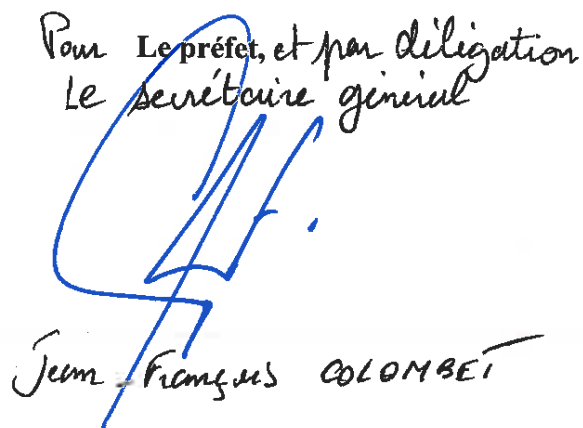 Pour Le préfet, et par délégation
Le secrétaire général
Jean-François COLOMBET